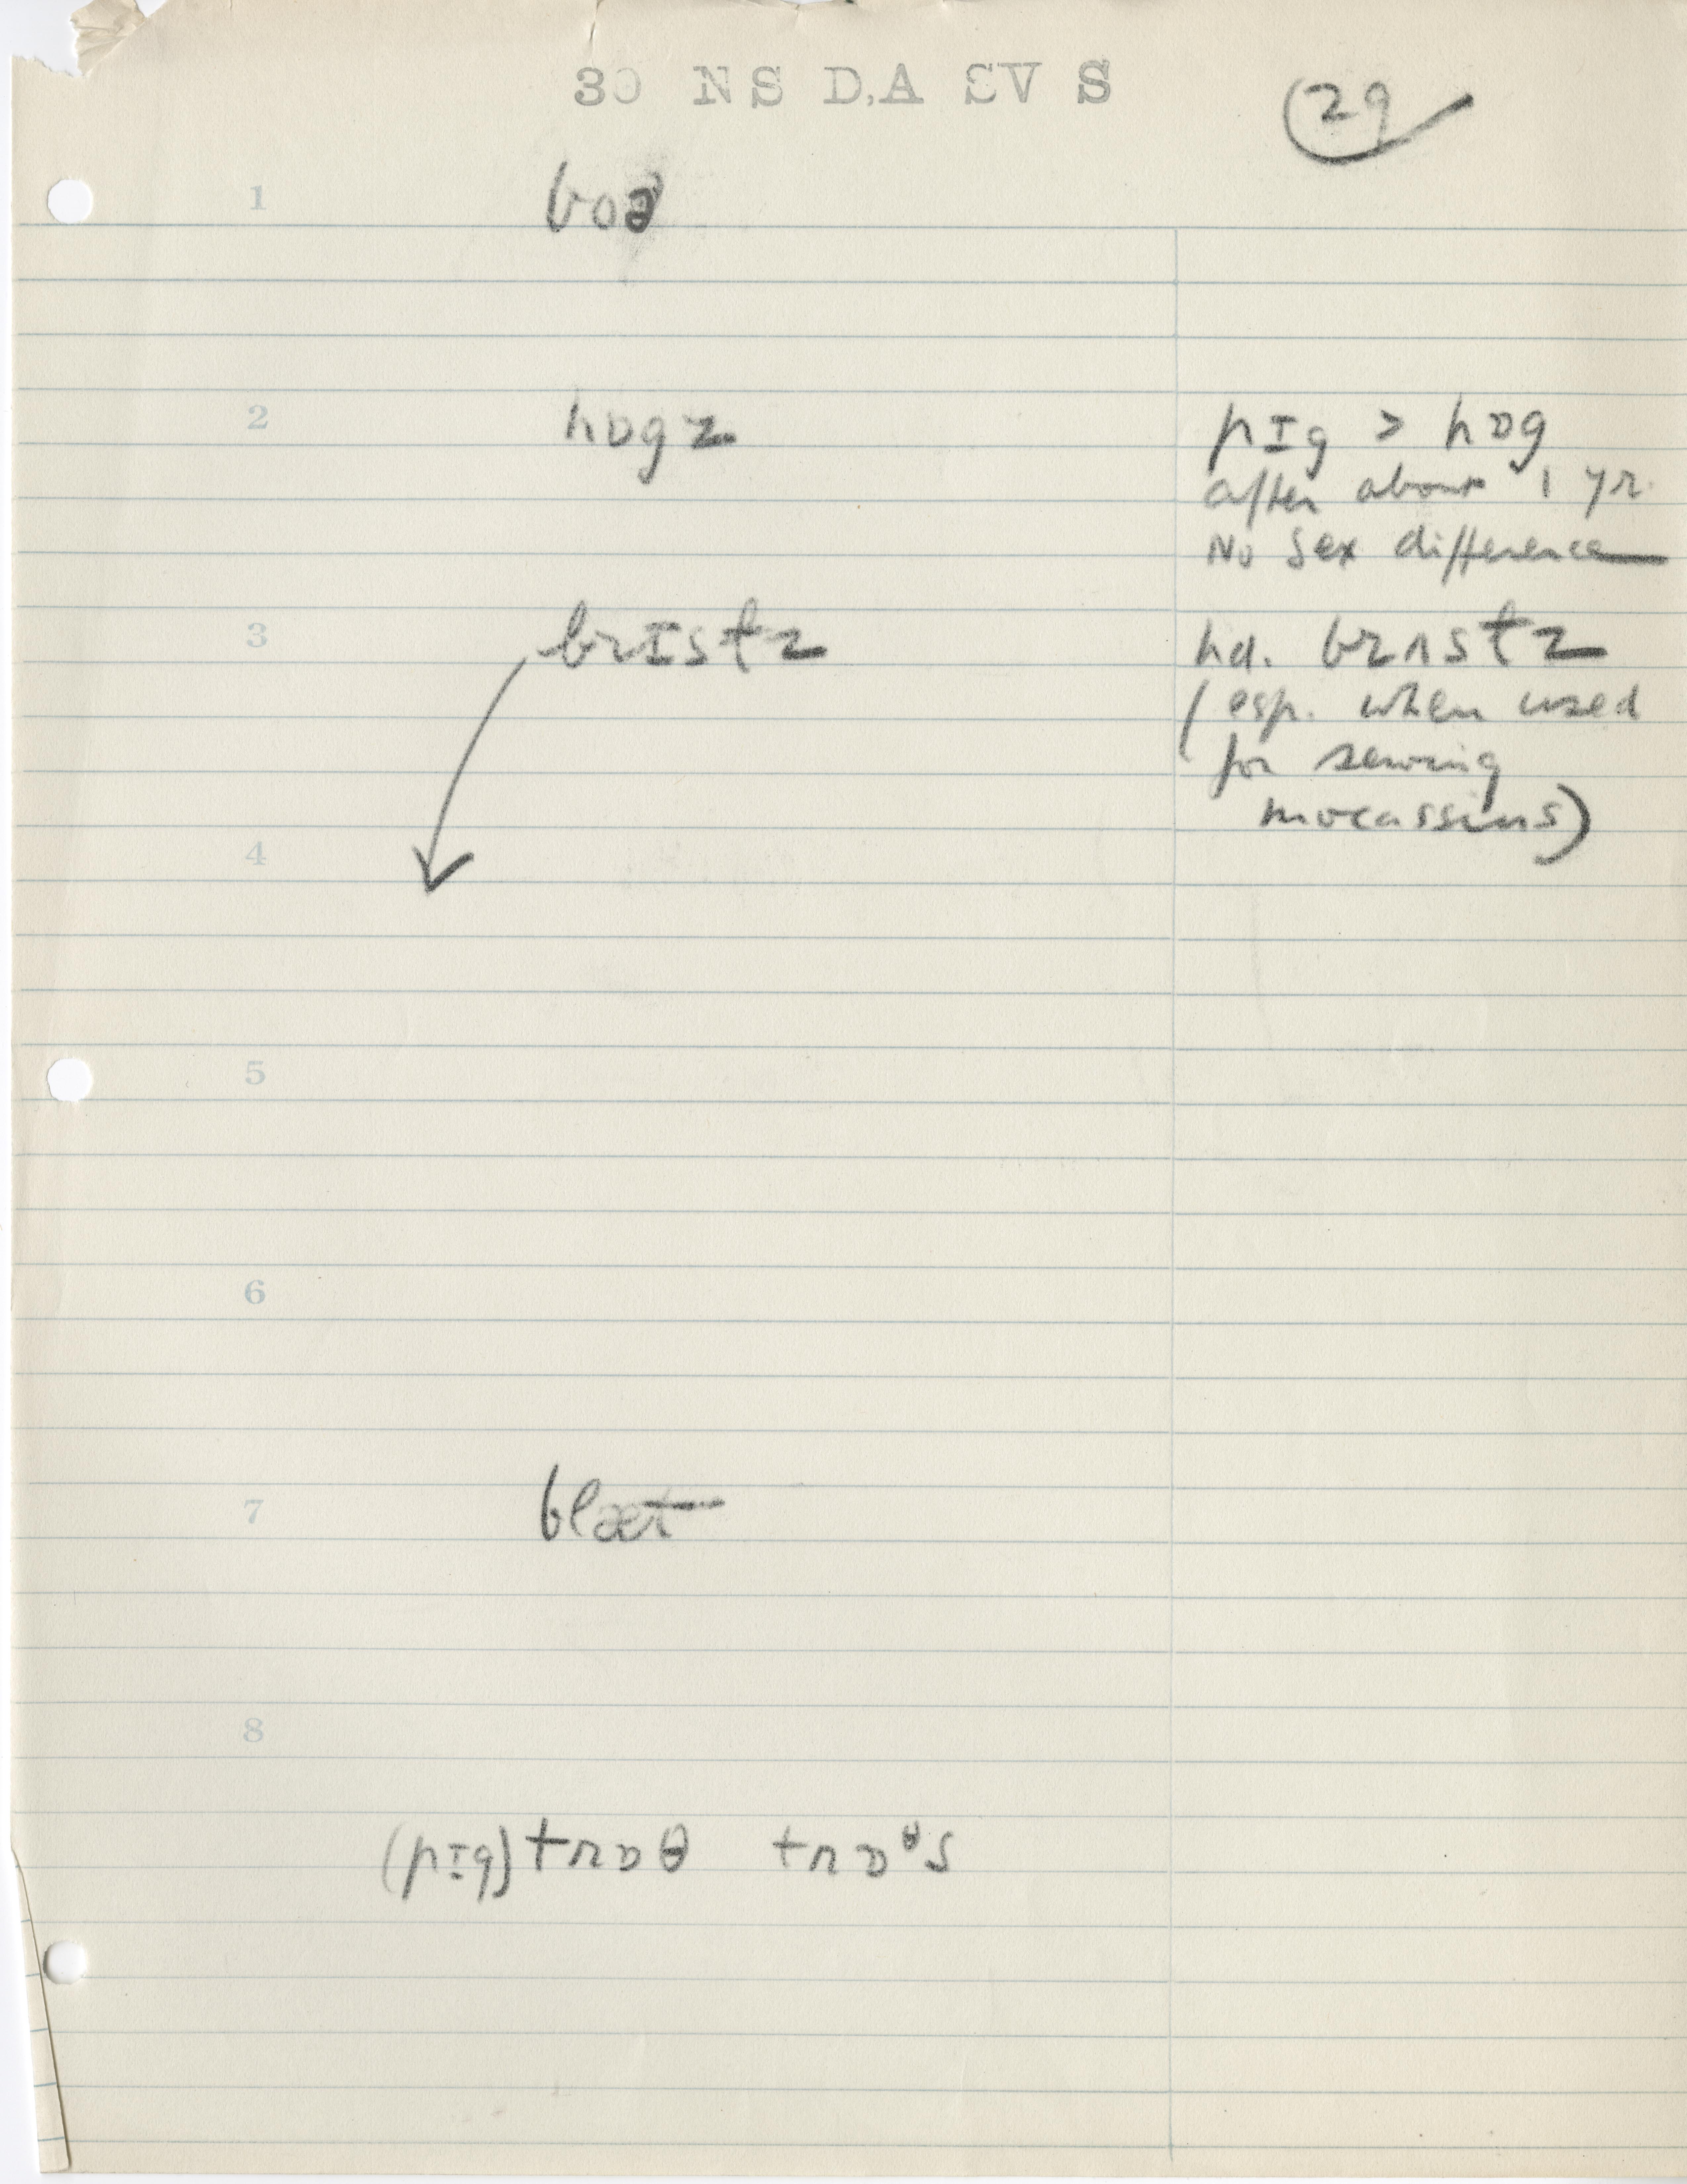 30 NS D.A SV S
29
1 boə
2 hɒgz pɪg > hɒg
after about 1 yr.
No sex difference
3 brɪstz hd. brʌstz
(esp. when used
for sewing
mocassins)
4
5
6
7 blæt
8
(pɪg) trɒθ trɒᶿs